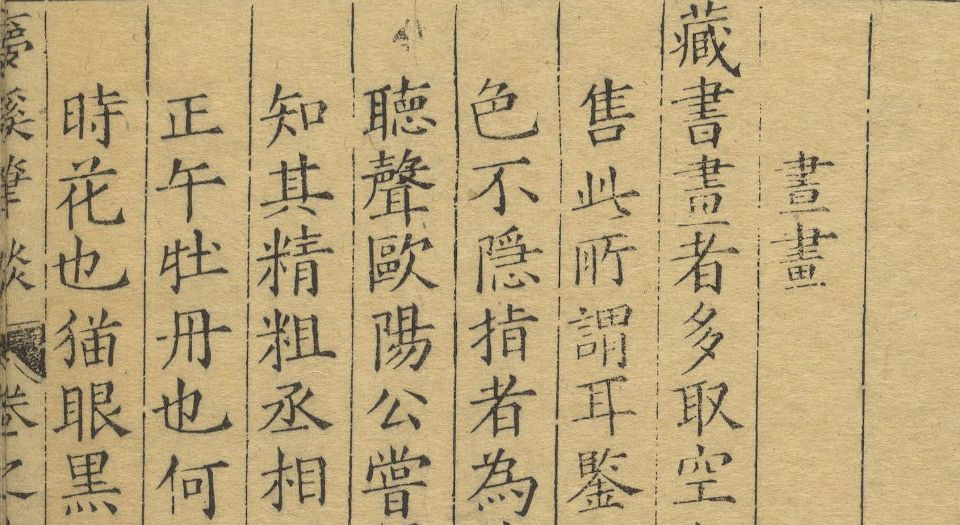 晝畫
藏書畫者多取空
售此所謂耳鑒
色不隱指者為
聽聲歐陽公嘗
知其精粗丞相
正午牡丹也何
時花也猫眼黑
夢溪筆談 卷之